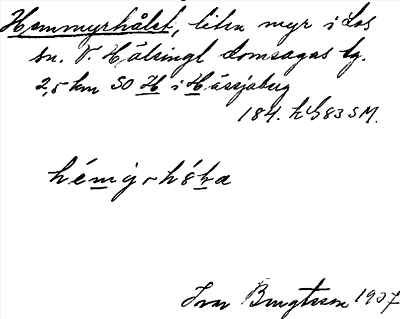 Hemmyrhålet, liten myr i Los
sn. V. Hälsingl domsagas tg.
2,5 km SO H i Hässjaberg
184. h S83 SM.
hémýrhó̱ḻa
Ivar Bengtsson 1937